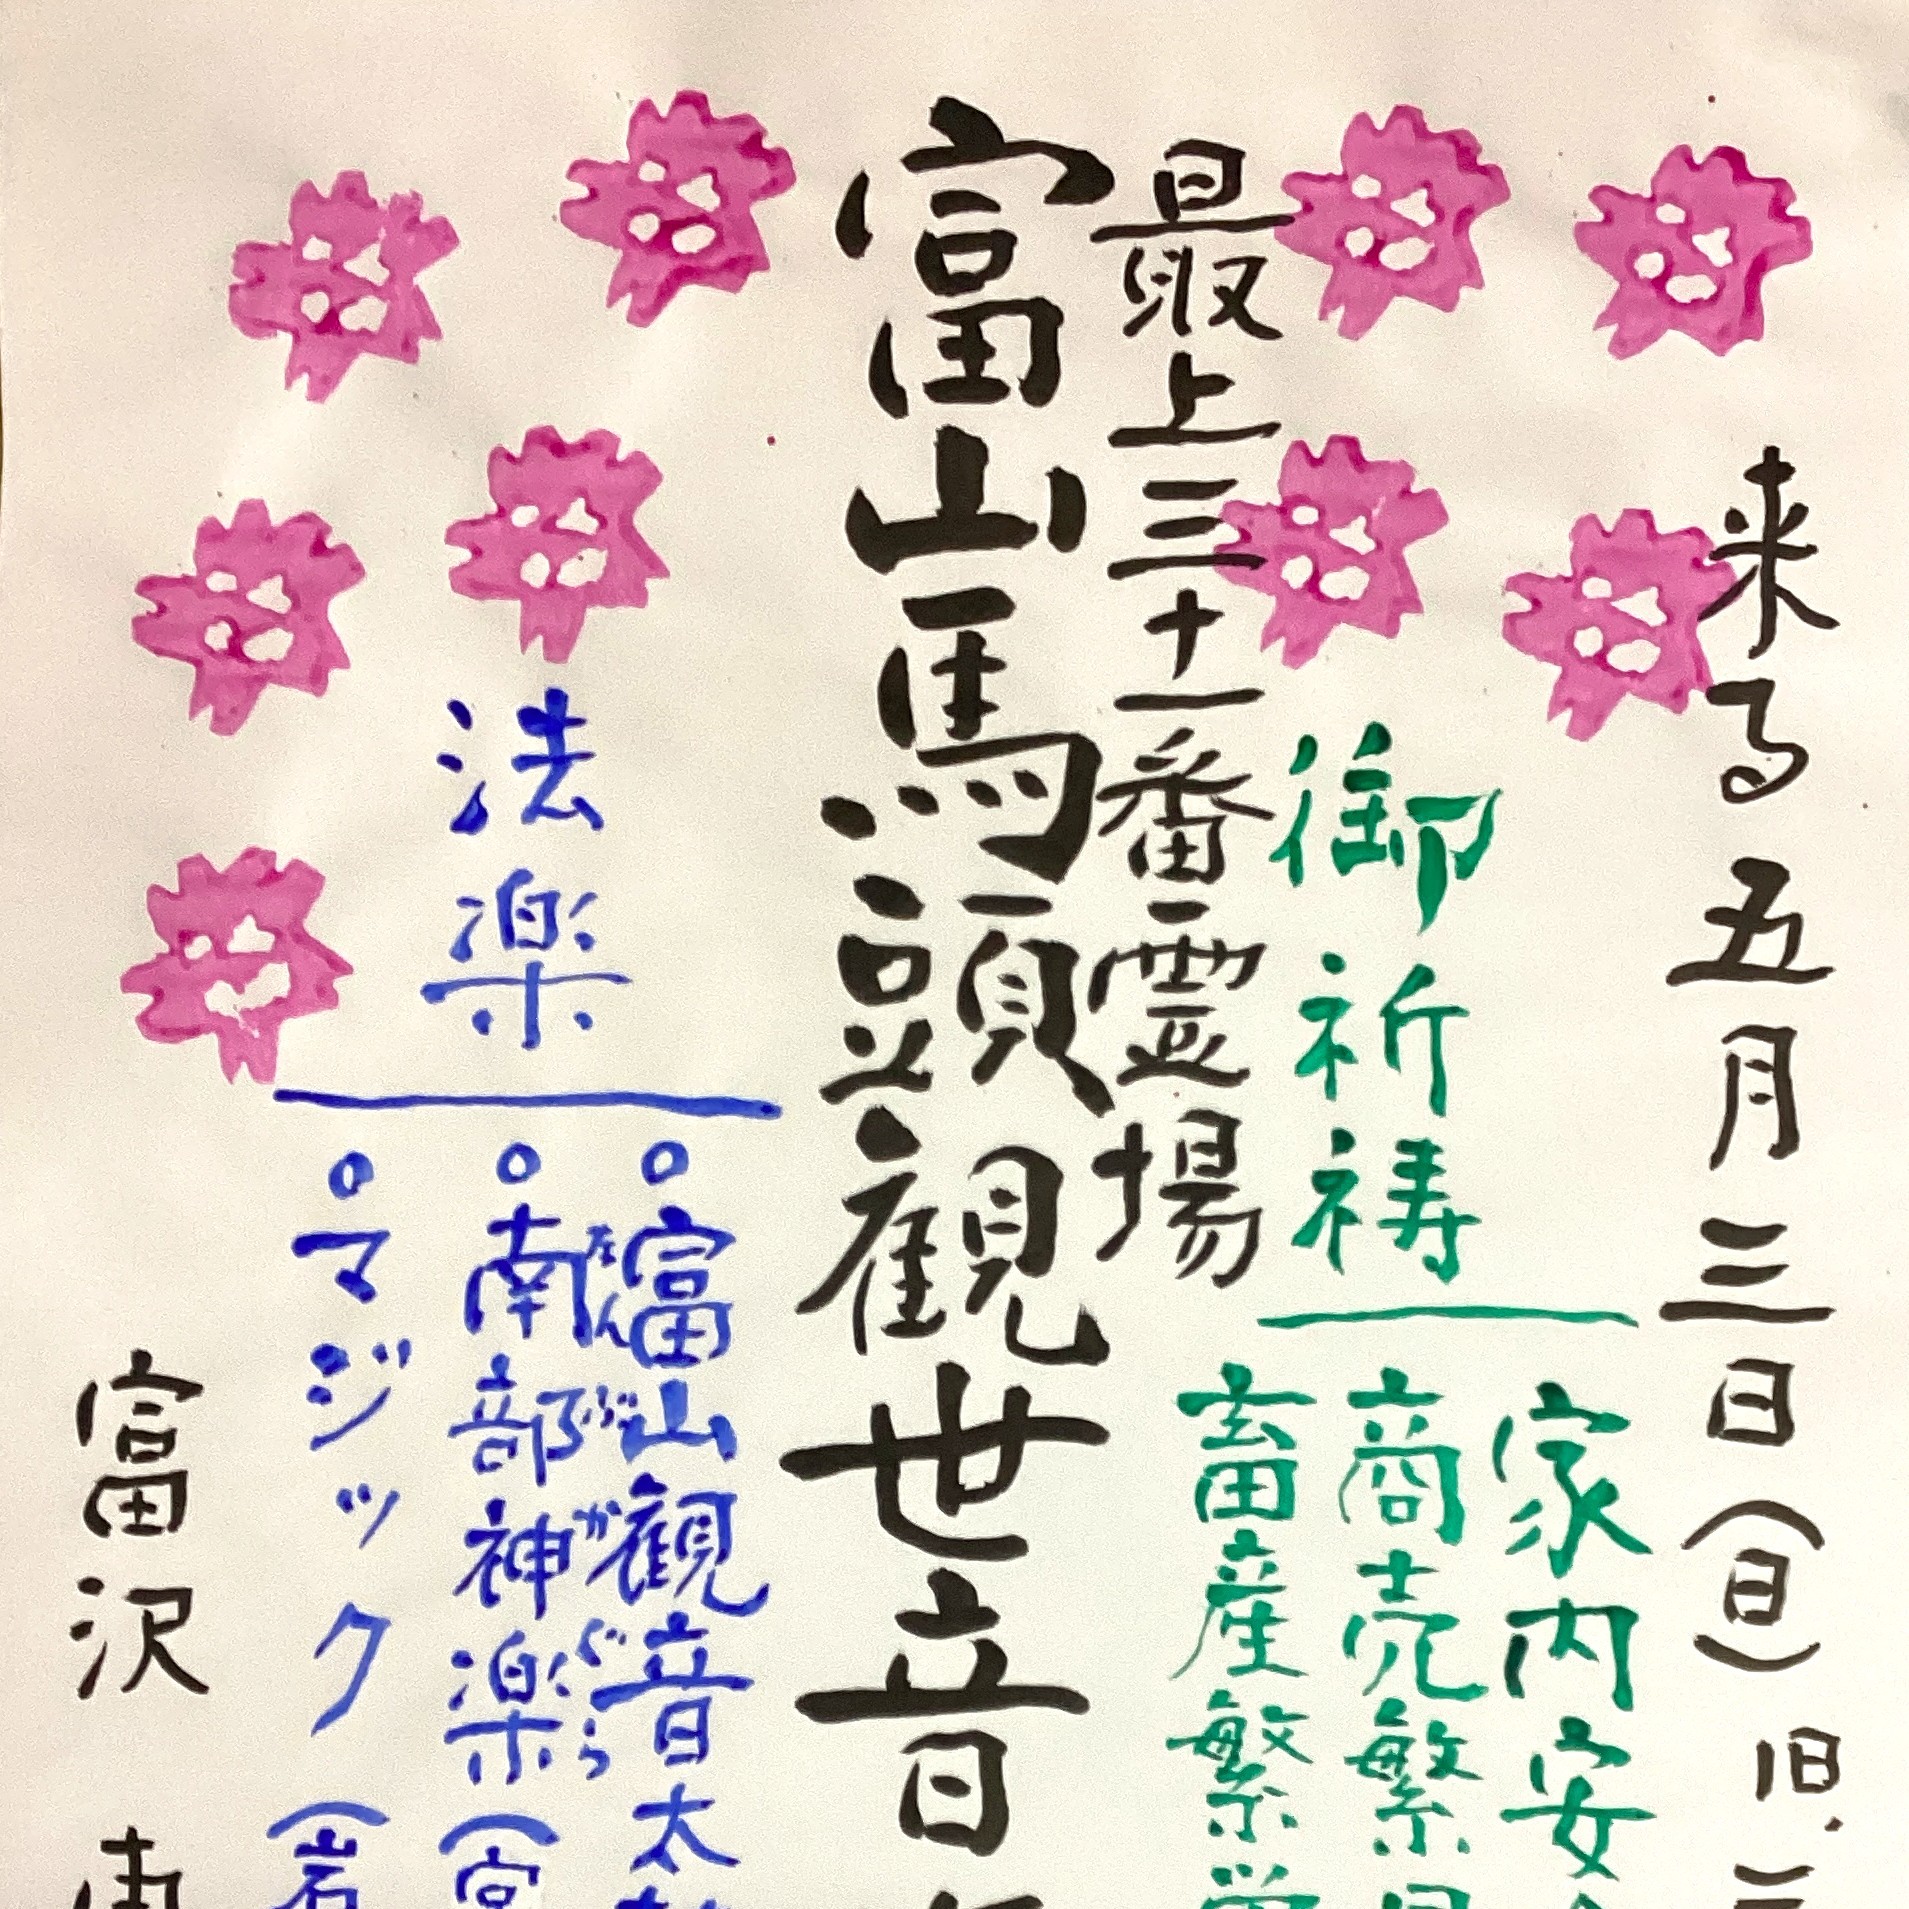 来る五月三日(日)旧.三
御祈祷
家内安
商売繁
畜産繁栄
最上三十一番霊場
富山馬頭観世音
法楽
。富山観音太
。南部神楽(宮
なんぶかぐら
。マジック(岩
富沢